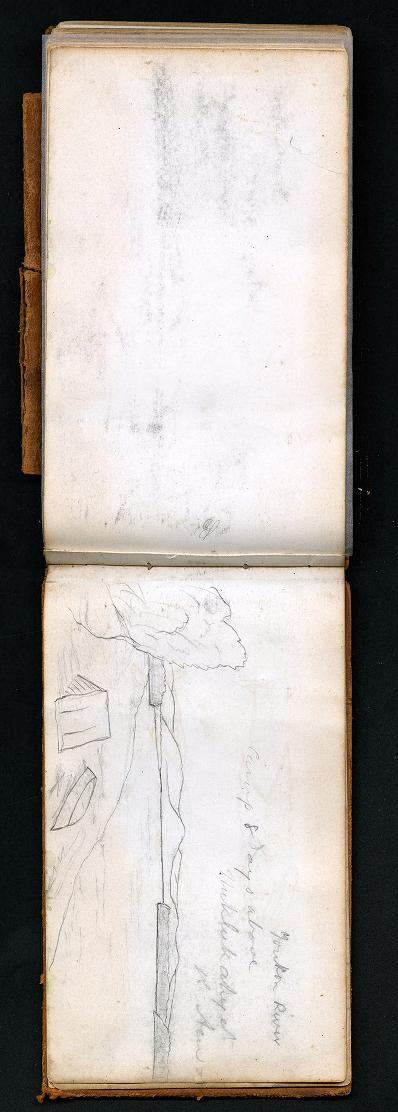 Yukon River
Camp 8 Days above
Nuklukahyet